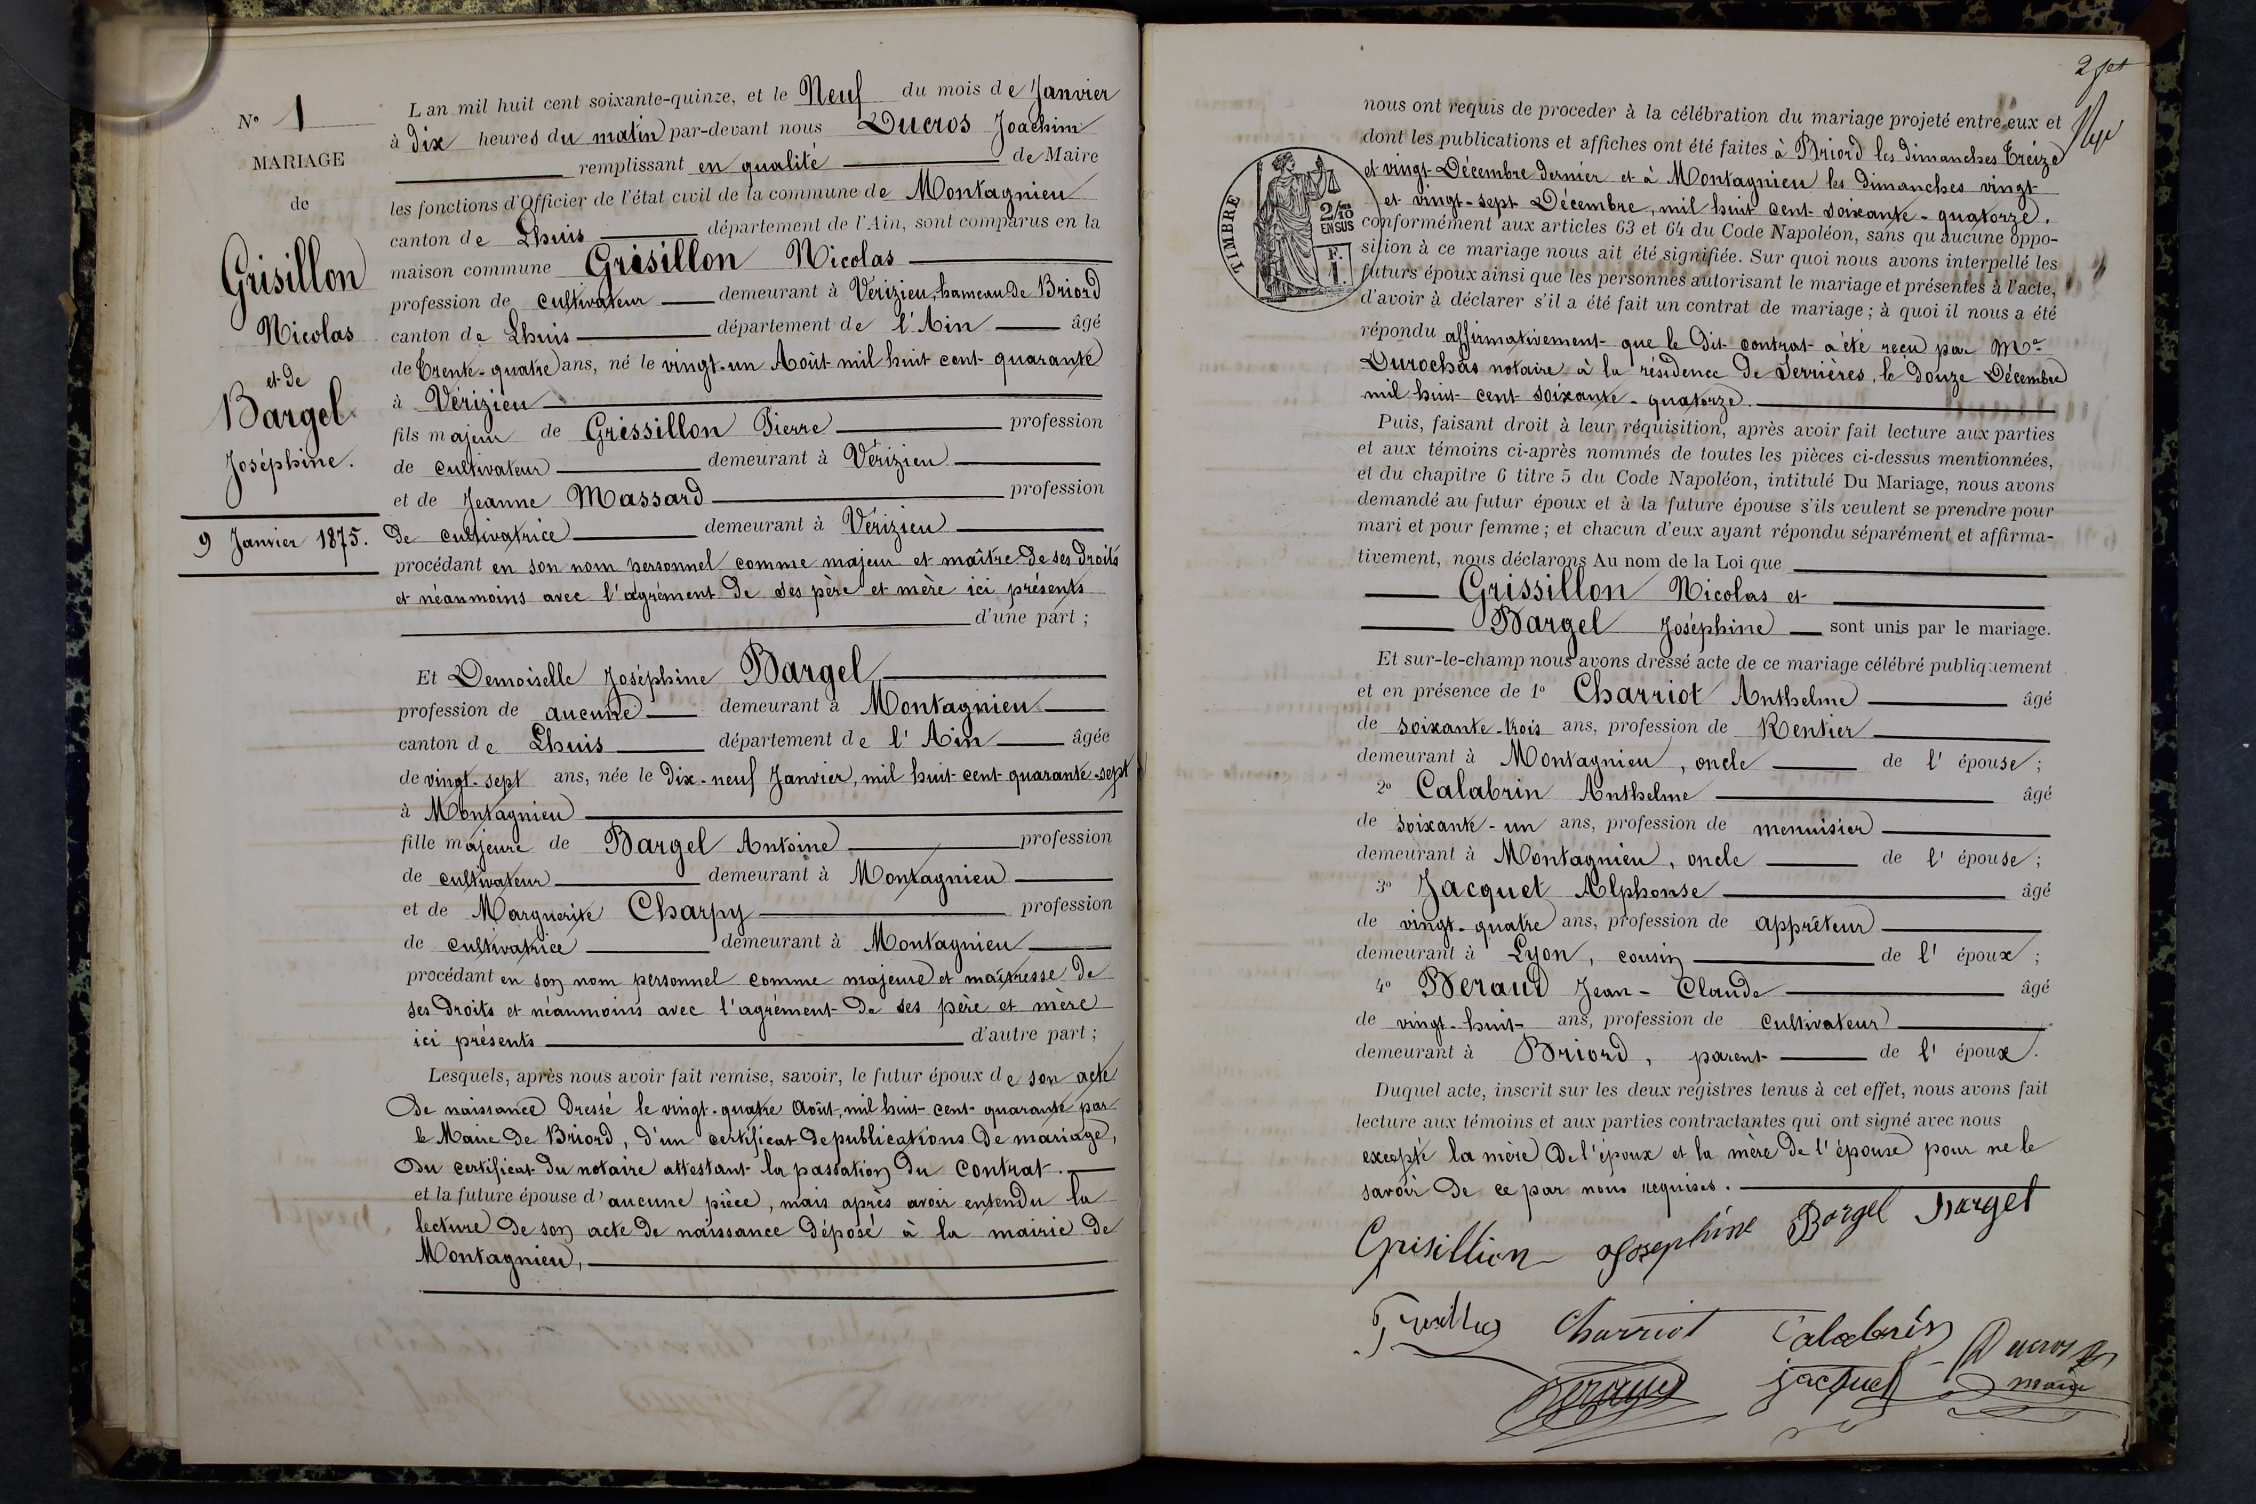 N° 1
MARIAGE
de
Grisillon
Nicolas
et de
Bargel
Joséphine.
9 Janvier 1875.
L an mil huit cent soixante-quinze, et le Neuf du mois de Janvier
à dix heures du matin par-devant nous Ducros Joachim
remplissant en qualité de Maire
les fonctions d'Officier de l'état civil de la commune de Montagnieu
canton de Lhuis département de l'Ain, sont comparus en la
maison commune Grisillon Nicolas
profession de cultivateur demeurant à Vérizieu, hameau de Briord
canton de Lhuis département de l'Ain âgé
de Trente-quatre ans, né le vingt-un Août mil huit cent quarante
à Vérizieu
fils majeur de Grissillon Pierre profession
de cultivateur demeurant à Vérizieu
et de Jeanne Massard profession
de cultivatrice demeurant à Vérizieu
procédant en son nom personnel comme majeur et maître de ses droits
et néanmoins avec l'agrément de ses père et mère ici présents
d'une part ;
Et Demoiselle Joséphine Bargel
profession de aucune demeurant à Montagnieu
canton de Lhuis département de l'Ain âgée
de vingt-sept ans, née le dix-neuf Janvier, mil huit cent quarante-sept
à Montagnieu
fille majeure de Bargel Antoine profession
de cultivateur demeurant à Montagnieu
et de Marguerite Charpy profession
de cultivatrice demeurant à Montagnieu
procédant en son nom personnel comme majeure et maîtresse de
ses droits et néanmoins avec l'agrément de ses père et mère
ici présents d'autre part ;
Lesquels, après nous avoir fait remise, savoir, le futur époux de son acte
de naissance dressé le vingt-quatre Août, mil huit cent quarante par
le Maire de Briord, d'un certificat de publications de mariage,
du certificat du notaire attestant la passation du contrat.
et la future épouse d'aucune pièce, mais après avoir entendu la
lecture de son acte de naissance déposé à la mairie de
Montagnieu,
nous ont requis de proceder à la célébration du mariage projeté entre eux et
dont les publications et affiches ont été faites à Briord les dimanches treize
et vingt Décembre dernier et à Montagnieu les dimanches vingt
et vingt-sept Décembre, mil huit cent soixante-quatorze.
TIMBRE
2/10
EN SUS
F.
1.
conformément aux articles 63 et 64 du Code Napoléon, sans qu'aucune oppo-
sition à ce mariage nous ait été signifiée. Sur quoi nous avons interpellé les
futurs époux ainsi que les personnes autorisant le mariage et présentes à l'acte,
d'avoir à déclarer s'il a été fait un contrat de mariage ; à quoi il nous a été
répondu affirmativement que le dit contrat a été reçu par Me
Durochas notaire à la résidence de Serrières, le douze Décembre
mil huit cent soixante-quatorze.
Puis, faisant droit à leur réquisition, après avoir fait lecture aux parties
et aux témoins ci-après nommés de toutes les pièces ci-dessus mentionnées,
et du chapitre 6 titre 5 du Code Napoléon, intitulé Du Mariage, nous avons
demandé au futur époux et à la future épouse s'ils veulent se prendre pour
mari et pour femme ; et chacun d'eux ayant répondu séparément et affirma-
tivement, nous déclarons Au nom de la Loi que
Grissillon Nicolas et
Bargel Joséphine sont unis par le mariage.
Et sur-le-champ nous avons dressé acte de ce mariage célébré publiquement
et en présence de 1° Charriot Anthelme âgé
de soixante-trois ans, profession de Rentier
demeurant à Montagnieu, oncle de l'épouse ;
2° Calabrin Anthelme âgé
de soixante-un ans, profession de menuisier
demeurant à Montagnieu, oncle de l'épouse ;
3° Jacquet Alphonse âgé
de vingt-quatre ans, profession de apprêteur
demeurant à Lyon, cousin de l'époux ;
4° Beraud Jean-Claude âgé
de vingt-huit ans, profession de Cultivateur
demeurant à Briord, parent de l'époux.
Duquel acte, inscrit sur les deux registres tenus à cet effet, nous avons fait
lecture aux témoins et aux parties contractantes qui ont signé avec nous
excepté la mère de l'époux et la mère de l'épouse pour ne le
savoir de ce par nous requises.
Grisillion Josephine Bargel Bargel
Charriot Calabrin Ducros
Beraud jacquet maire